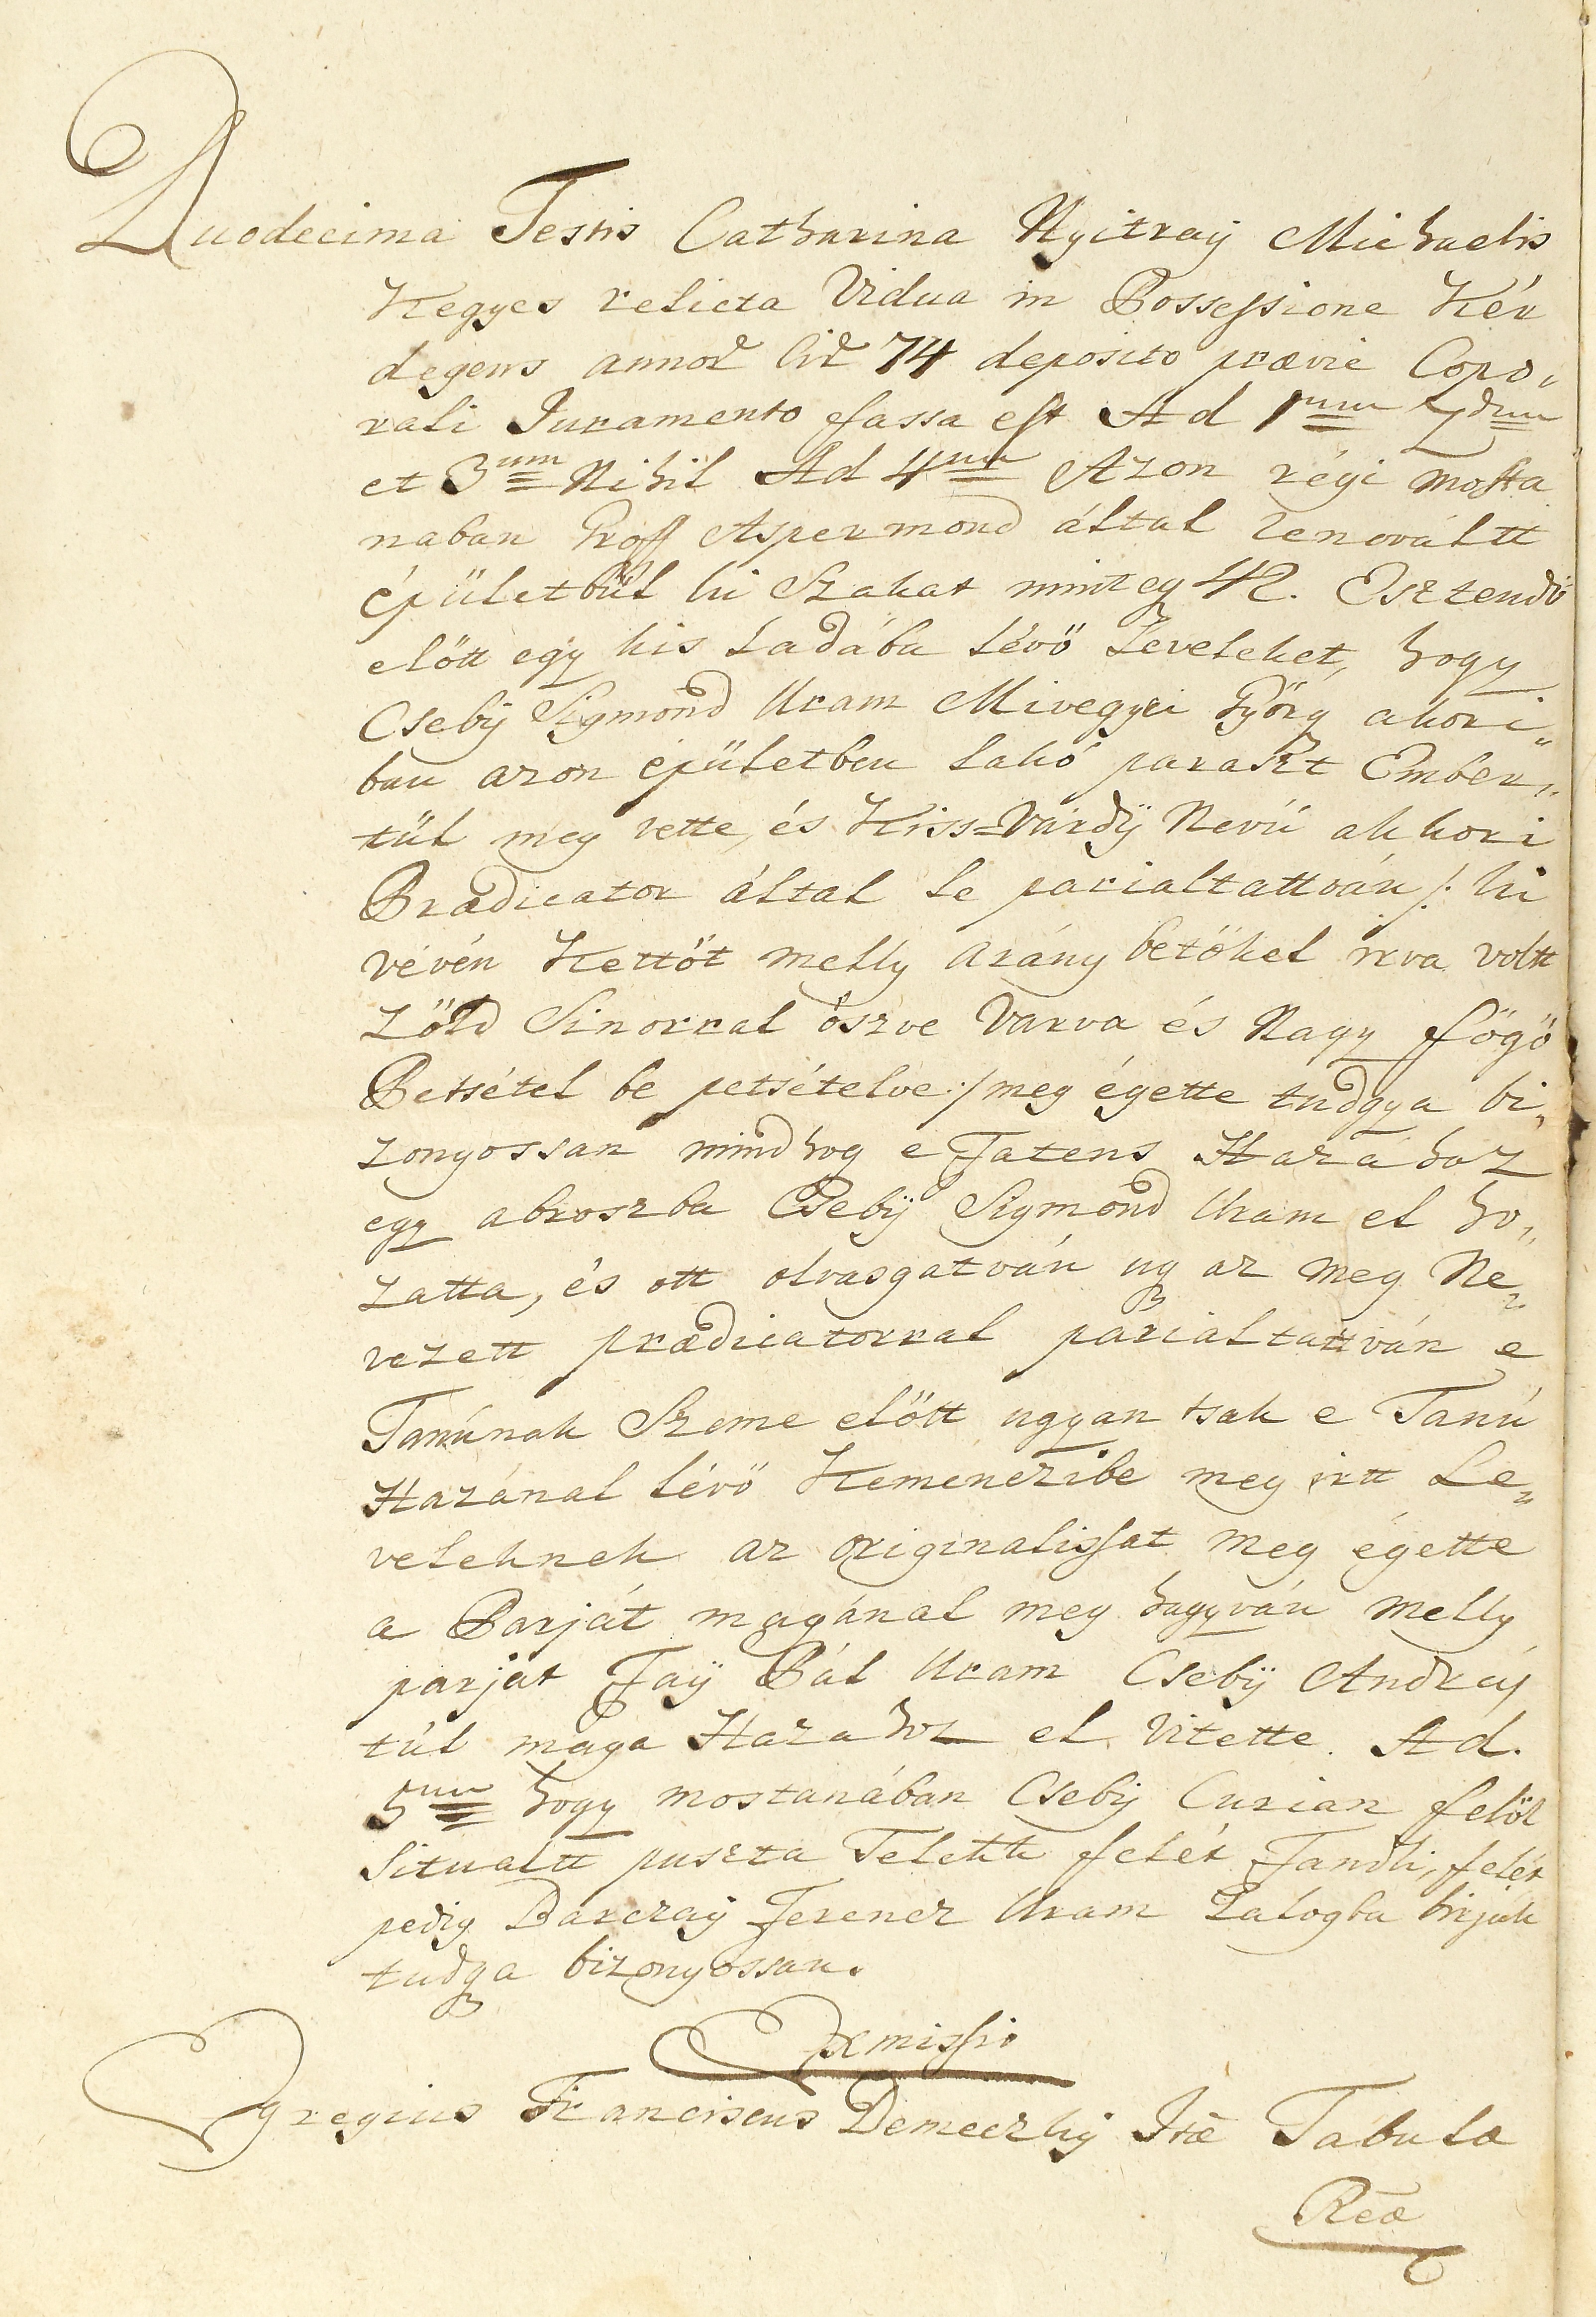 Duodecima Testis Catharina Nyitraÿ Michaelis
Kegyes relicta Vidua in Possessione Kér
degens annor cir 74 deposito prævie Corpo„
rali Juramento fassa est Ad 1mum 2dum
et 3um Nihil Ad 4um Azon régi mosta
naban Groff Aspermond által renováltt
épületbül ki Szakat mint egy 42. Esztendö
elött egy kis Ladába lévö Leveleket, hogy
Csebÿ Sigmond Uram Mivegyei Györg akori„
ban azon épületben lakó paraszt Ember„
tül meg vette, és Kiss=Várdÿ Nevü akkori
Prædicator által le parialtattván /: ki
vévén Kettöt melly arány betökel irva voltt
Zöld Sinorral öszve Varva és Nagy függö
Petsétel be petsételve :/ meg égette tudgya bi„
zonyossan mind hogy e Fatens Hazához
egy abroszba Csebÿ Sigmond Uram el ho„
zatta, és ott olvasgatván ugy az meg Ne„
vezett prædicatorral parialtattván e
Tanúnak Szeme elött ugyan tsak e Tanú
Hazánal lévö Kemenczibe meg irtt Le„
veleknek az originalissat meg égette
a Parját magánal meg hagyván melly
parját Faÿ Pál Uram Csebÿ Andráj
túl maga Hazahoz el Vitette. Ad.
5um hogy mostanában Csebÿ Curian felöl
Situaltt puszta Telekk felét Fandli, felét
pedig Barczaÿ Ferencz Uram Zálogba birják
tudgya bizonyossan.
Exmissio
Egregius Franciscus Demeczkÿ Itæ Tabulæ
Reæ